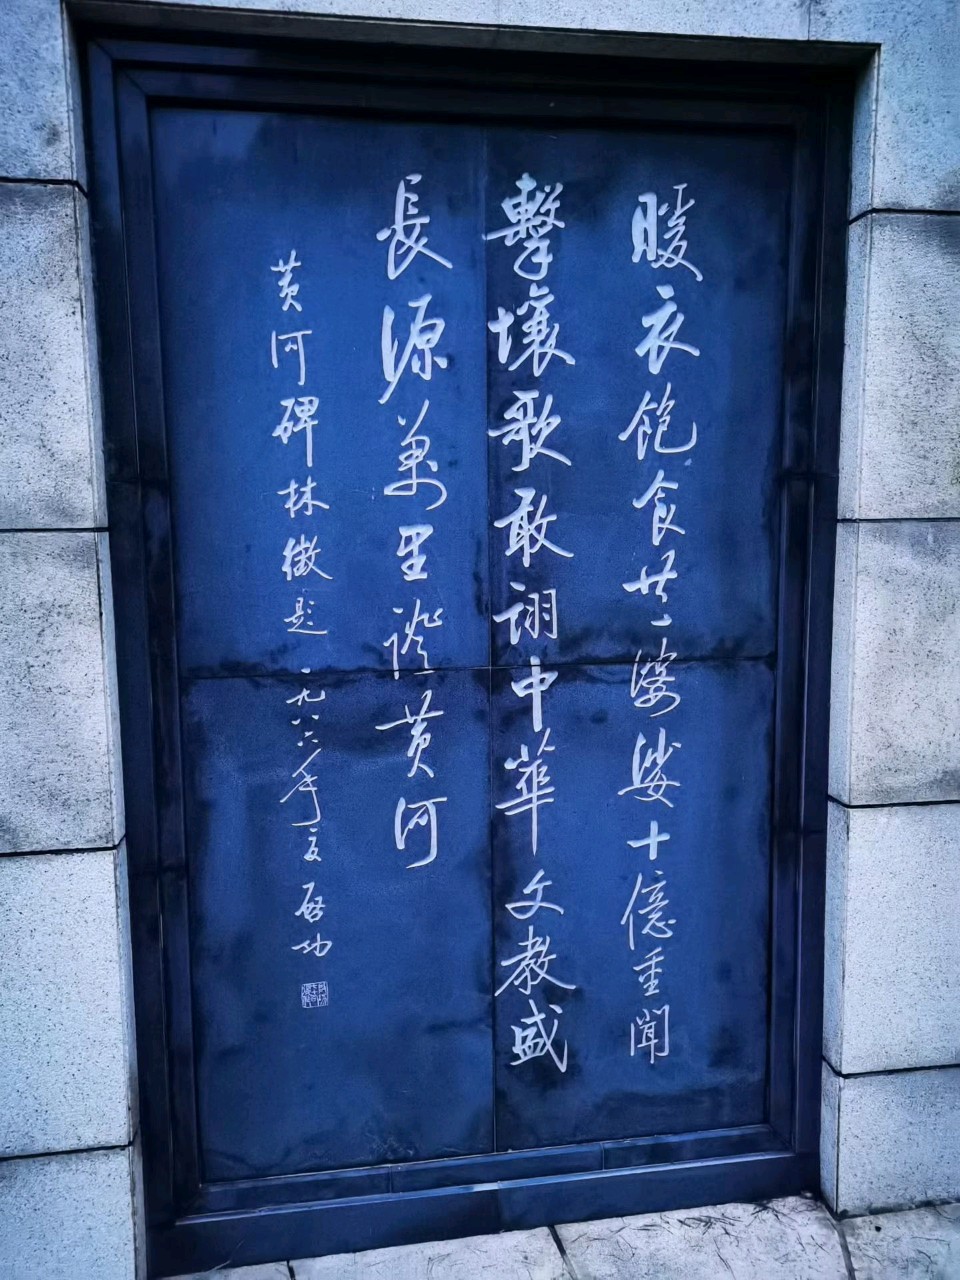 暖衣飽食共婆娑十億重聞
擊壤歌敢詡中華文教盛
長源萬里證黃河
黃河碑林徵題一九八六年夏啟功